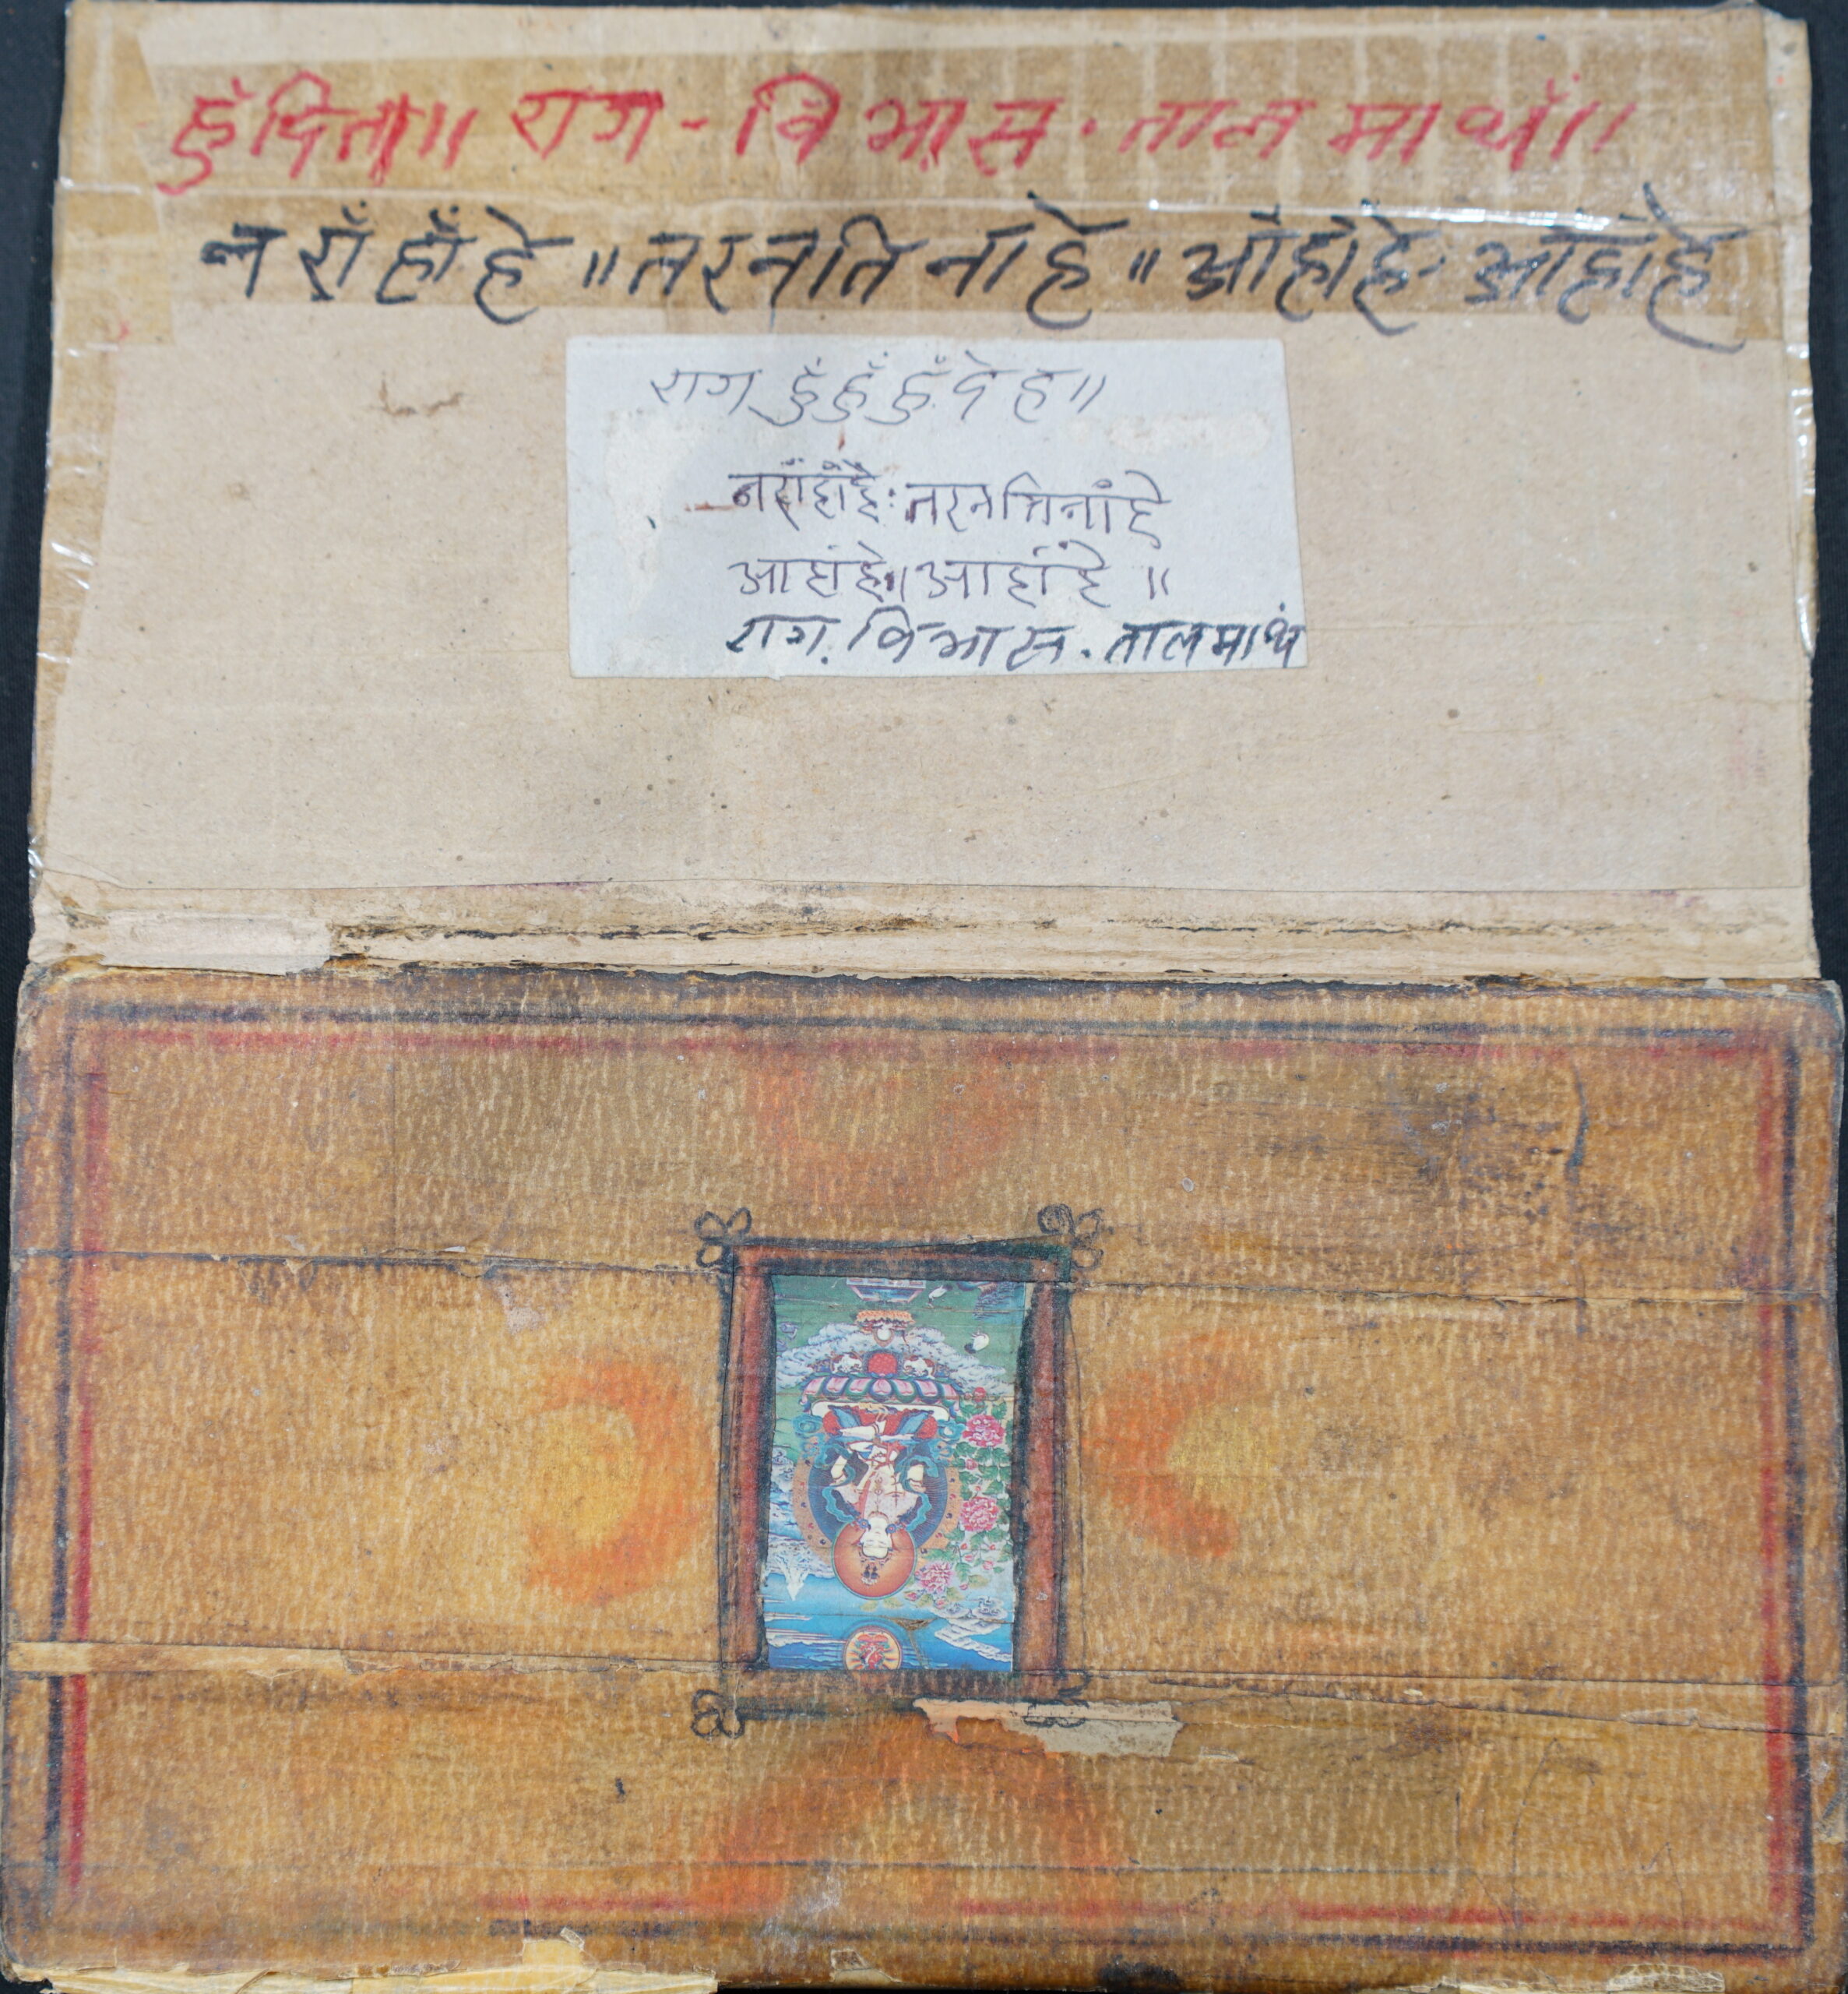 हुँदिता॥ राग - विभास · ताल माथं॥
न राँ हाँ हे ॥ तरनति नाहे ॥ आँहाहे · आहाहे
राग हुँ हुँ हुँ दे हे॥
नराँहाँहे: तरनत्तिनांहे
आहांहे॥ आहांहे ॥
राग. विभास. तालमाथं